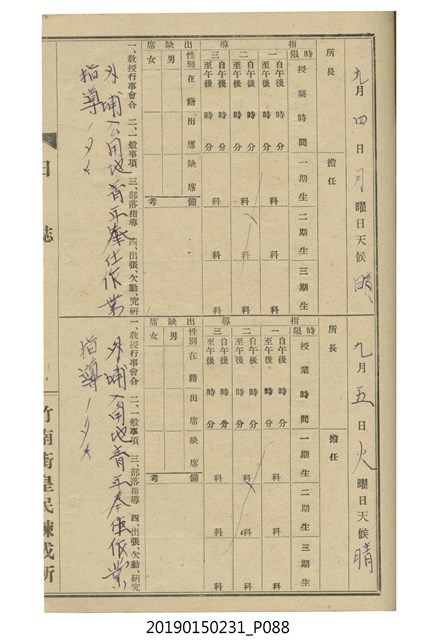 九月四日月曜日天候晴
所長
擔任
指導
時限 授業時間 一期生 二期生 三期生
一 自午後 時 分 至午後 時 分 科 科 科
二 自午後 時 分 至午後 時 分 科 科 科
三 自午後 時 分 至午後 時 分 科 科 科
出缺席
性別 在籍 出席 缺席 備考
男
女
一、教授行事會合 二、一般事項 三、部落指導 四、出張、欠勤、究研
外埔入用地青年奉仕作業
指導
九月五日火曜日天候晴
所長
擔任
指導
時限 授業時間 一期生 二期生 三期生
一 自午後 時 分 至午後 時 分 科 科 科
二 自午後 時 分 至午後 時 分 科 科 科
三 自午後 時 分 至午後 時 分 科 科 科
出缺席
性別 在籍 出席 缺席 備考
男
女
一、教授行事會合 二、一般事項 三、部落指導 四、出張、欠勤、研究
外埔入用地青年奉仕作業
指導
日誌
竹南街皇民鍊成所
20190150231_P088